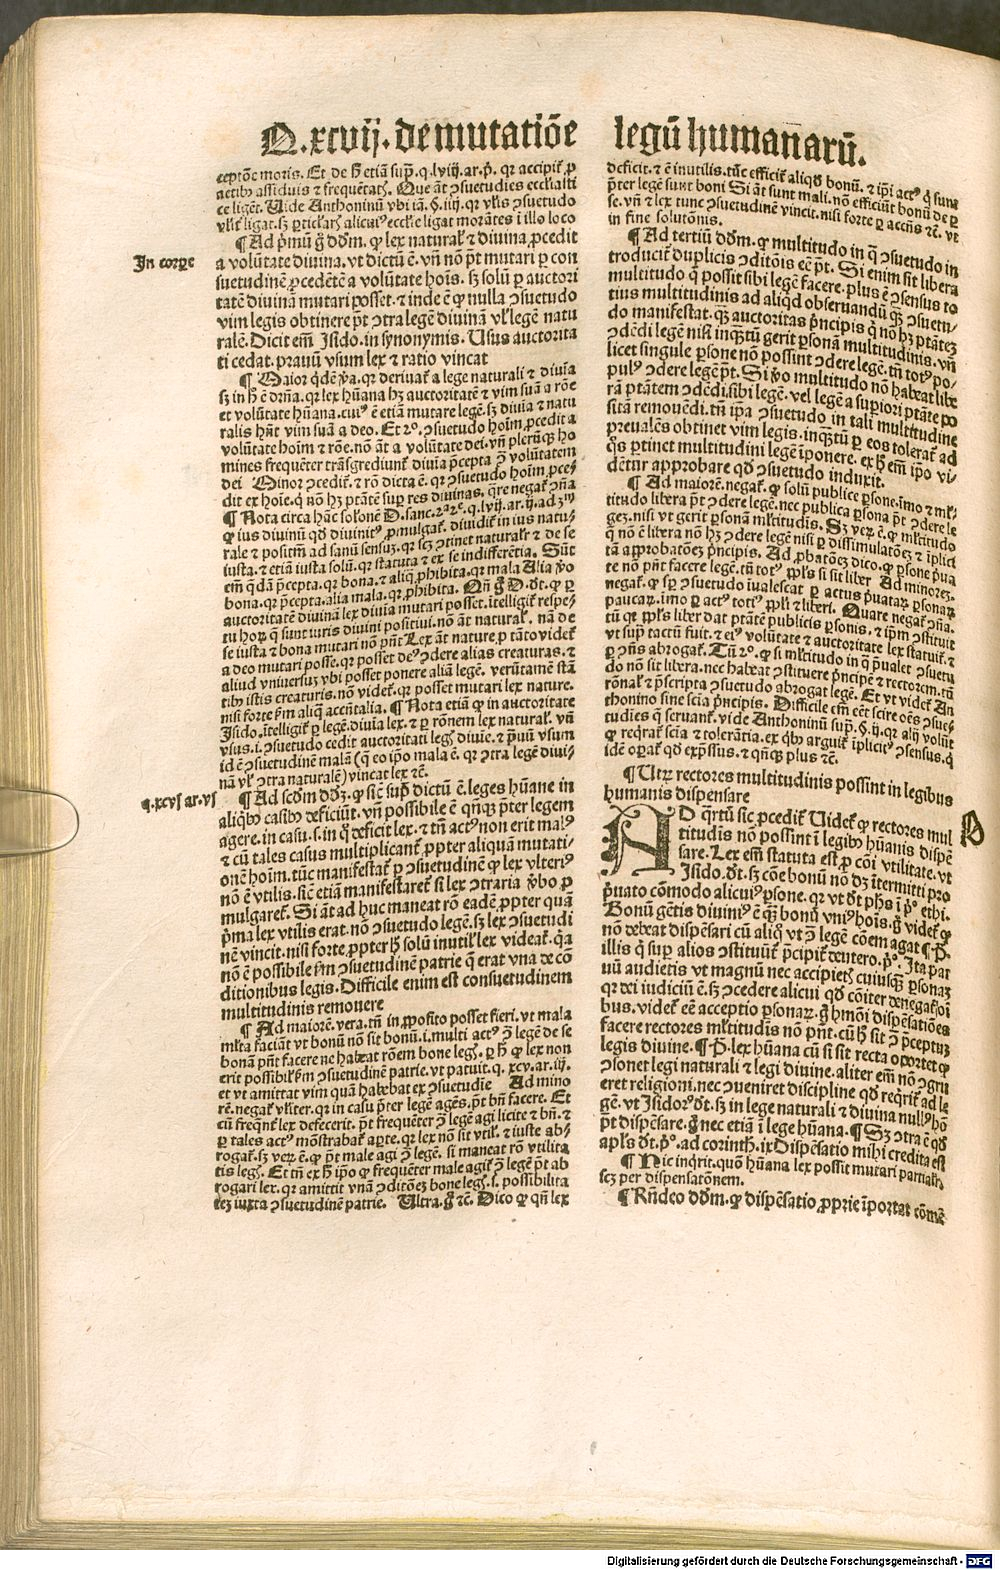 Q. xcvij. de mutatiōe
legū humanarū.
ceptōe moris. Et de h̄ etiā supͣ. q. lviij. ar. p̄. qꝛ accipit̄ ꝓ
actibꝰ assiduis ⁊ frequētatꝭ. Que āt ↄsuetudies eccłiasti
ce ligēt. Uide Anthoninū vbi iā. §. iiij. qꝛ vłis ↄsuetudo
vłit̄ ligat. sꝫ ꝑticłarꝭ alicuiꝰ eccłie ligat morātes ī illo loco
¶ Ad pͥmū g̊ dōm. ꝙ lex naturał ⁊ divina ꝓcedit
In corpe
a volūtate divina. vt dictū ē. vn̄ nō pōt mutari ꝑ con
suetudinē ꝓcedētē a volūtate hoīs. sꝫ solū ꝑ auctori
tatē divinā mutari posset. ⁊ inde ē ꝙ nulla ↄsuetudo
vim legis obtinere pōt ↄtra legē divinā vł legē natu
ralē. Dicit em̄ Isido. in synonymis. Usus auctorita
ti cedat. pravū vsum lex ⁊ ratio vincat
¶ Maior qͥdē ꝟa. qꝛ derivat̄ a lege naturali ⁊ diuīa
sꝫ in h̄ ē drn̄a. qꝛ lex hūana hꝫ auctoritatē ⁊ vim suā a rōe
et volūtate hūana. cuiꝰ ē etiā mutare legē. sꝫ diuīa ⁊ natu
ralis hn̄t vim suā a deo. Et 2º. ↄsuetudo hoīm ꝓcedit a
volūtate hoīm ⁊ rōe. nō āt a volūtate dei. vn̄ plerūqꝫ ho
mines frequēter trāsgrediunt̄ diuīa p̄cepta ↄ̄ volūtatem
dei Minor ↄcedit̄. ⁊ rō dicta ē. qꝛ ↄsuetudo hoīm ꝓceꝫ
dit ex hoīe. q̄ nō hꝫ ptātē supͣ res divinas. qͣre negat̄ ↄn̄a
¶ Nota circa hāc solōnē D. sanc. 2ª 2ᵉ. q. lvij. ar. ij. ad 3ᵐ
ꝙ ius divinū qd̄ divinitꝰ ꝓmulgat̄. dividit̄ in ius natu⸗
rale ⁊ positiū ad sanū sensuꝫ. qꝛ scꝫ ↄtinet naturalr̄ ⁊ de se
iusta. ⁊ etiā iusta solū. qꝛ statuta ⁊ ex se indifferētia. Sūt
em̄ qͦdā p̄cepta. qꝛ bona. ⁊ aliqͣ ꝓhibita. qꝛ mala Alia ꝟo
bona. qꝛ p̄cepta. alia mala. qꝛ ꝓhibita. Qn̄ g̊ D. dt. ꝙ ꝑ
auctoritatē divinā lex diuia mutari posset. ītelligit̄ respeꝫ
tu horꝫ q̄ sunt iuris divini positivi. nō āt natural̄. nā de
se iusta ⁊ bona mutari nō pn̄t Lex āt nature. ꝑ tāto videt̄
a deo mutari posse. qꝛ posset deꝰ ↄdere alias creaturas. ⁊
aliud vniversuꝫ vbi posset ponere aliā legē. verūtamē stā
tibꝰ istis creaturis. nō videt̄. qꝛ posset mutari lex nature.
nisi forte ꝓm aliqͣ accn̄talia. ¶ Nota etiā ꝙ in auctoritate
Isido. ītelligit̄ ꝑ legē. divīa lex. ⁊ ꝑ rōnem lex natural̄. vn̄
vsus. i. ↄsuetudo cedit auctoritati legꝭ diuie. ⁊ pͣuū vsum
id ē ↄsuetudinē malā (q̄ eo ip̄o mala ē. qꝛ ↄtra legē divi⸗
nā vł ↄtra naturalē) vincat lex ⁊c̄.
q. xcvj ar. vj
¶ Ad scd̄m dd̄ꝫ. ꝙ sic̄ supͣ dictū ē. leges hūane in
aliqͥbꝰ casibꝰ deficiūt. vn̄ possibile ē qn̄qꝫ p̄ter legem
agere. in casu. s. in q̊ deficit lex. ⁊ tn̄ actꝰ non erit malꝰ
⁊ cū tales casus multiplicant̄ ꝓpter aliquam mutati⸗
onē hoīm. tūc manifestat̄ ꝑ ↄsuetudinē ꝙ lex vlteriꝰ
nō ē vtilis. sic̄ etiā manifestaret̄ si lex ↄtraria ꝟbo ꝓ
mulgaret̄. Si āt ad huc maneat rō eadē ꝓpter quā
pͥma lex vtilis erat. nō ↄsuetudo legē. sꝫ lex ↄsuetudi
nē vincit. nisi forte ꝓpterh̄ solū inutil̄ lex videat̄. qꝛ
nō ē possibile ꝓm ↄsuetudinē patrie q̄ erat vna de cō
ditionibus legis. Difficile enim est consuetudinem
multitudinis removere
¶ Ad maiorē. vera. tn̄ in ꝓposito posset fieri. vt mala
młta faciāt vt bonū nō sit bonū. i. multi actꝰ ↄ̄ legē de se
bonā pn̄t facere ne habeat rōem bone legꝭ. ꝑ h̄ ꝙ lex non
erit possibił ꝓm ↄsuetudinē patrie. vt patuit. q. xcv. ar. iij.
et vt amittat vim quā habebat ex ↄsuetudīe Ad mino
rē. negat̄ vłiter. qꝛ in casu p̄ter legē agēs. pōt bn̄ facere. Et
cū freqn̄t̄ lex defecerit. pōt frequēter ↄ̄ legē agi licite ⁊ bn̄. ⁊
ꝑ tales actꝰ mōstrabat̄ apte. qꝛ lex nō sit vtił. ⁊ iuste ab⸗
rogat̄. sꝫ verꝫ ē. ꝙ pōt male agi ↄ̄ legē. si maneat rō vtilita
tis legꝭ. Et tn̄ ex h̄ ip̄o ꝙ frequēter male agit̄ ↄ̄ legē pōt ab
rogari lex. qꝛ amittit vnā ↄditōeꝫ bone legꝭ. s. possibilita
teꝫ iuxta ↄsuetudinē patrie. Ultra. g̊ ⁊c̄. Dico ꝙ qn̄ lex
deficit. ⁊ ē inutilis. tūc efficit̄ aliqd̄ bonū. ⁊ ip̄i actꝰ q̄ sunt
p̄ter legē sunt boni Si āt sunt mali. nō efficiūt bonū de ꝑ
se. vn̄ ⁊ lex tunc ↄsuetudinē vincit. nisi forte ꝑ accn̄s ⁊c̄. vt
in fine solutōnis.
¶ Ad tertiū dōm. ꝙ multitudo in q̄ ↄsuetudo in
troducit̄ duplicis ↄditōis eē pōt. Si enim sit libera
multitudo q̄ possit sibi legē facere. plus ē ↄsensus to
tius multitudinis ad aliqd̄ observandū qͣꝫ ↄsuetu⸗
do manifestat. qͣꝫ auctoritas pͥncipis q̄ nō hꝫ ptāteꝫ
ↄdēdi legē nisi inqͣꝫtū gerit psonā multitudinis. vn̄
licet singule ꝑsone nō possint ↄdere legē. tn̄ totꝰ po⸗
pulꝰ ↄdere legē pōt. Si ꝟo multitudo nō habeat libe
rā ptātem ↄdēdi. sibi legē. vel legē a supiori ptāte po
sitā removēdi. tn̄ ip̄a ↄsuetudo in tali multitudine
prevalēs obtinet vim legis. inqͣꝫtū ꝑ eos tolerat̄ ad
qͦs ꝑtinet multitudini legē īponere. ex h̄ em̄ ip̄o vi⸗
dētur approbare qd̄ ↄsuetudo induxit.
¶ Ad maiorē. negat̄. ꝙ solū publice ꝑsone. īmo ⁊ mł⸗
titudo libera pōt ↄdere legē. nec publica ꝑsona pōt ↄdere le
geꝫ. nisi vt gerit ꝑsonā młtitudīs. Sꝫ verꝫ ē. ꝙ młtitudo
q̄ nō ē libera nō hꝫ ↄdere legē nisi ꝑ dissimulatōeꝫ ⁊ īplici
tā approbatōeꝫ pͥncipis. Ad ꝓbatōeꝫ dico. ꝙ ꝑsone pͥua
te nō pn̄t facere legē. tn̄ totꝰ ppls si sit liber Ad minoreꝫ.
negat̄. ꝙ spͥ ↄsuetudo īualescat ꝑ actus pͥuataꝝ ꝑsonaꝝ
paucaꝝ. imo ꝑ actꝰ totiꝰ ppłi ⁊ liberi. Quare negat̄ ↄn̄a.
tū qꝛ ppłs liber dat ptātē publicis ꝑsonis. ⁊ ip̄m ↄstituit
vt supͣ tactū fuit. ⁊ eiꝰ volūtate ⁊ auctoritate lex statuit̄. ⁊
ꝑ ↄn̄s abrogat̄. Tū 2º. ꝙ si młtitudo in q̄ p̄ualet ↄsuetu
do nō sit libera. nec habeat ↄstituere pͥncipē ⁊ rectorem. tn̄
rōnał ⁊ p̄scripta ↄsuetudo abrogat legē. Et vt videt̄ An
thonino sine scīa pͥncipis. Difficile em̄ eēt scire oēs ↄsue⸗
tudies q̄ servant̄. vide Anthoninū supͣ. §. ij. qꝛ alij volūt
ꝙ reqͥrat̄ scīa ⁊ tolerātia. ex qͥbꝰ arguit̄ īplicitꝰ ↄsensus. q̄
idē operat̄ qd̄ exp̄ssus. ⁊ qn̄qꝫ plus ⁊c̄.
¶ Utrꝫ rectores multitudinis possint in legibus
humanis dispensare
AD qͣrtū sic ꝓcedit̄ Videt̄ ꝙ rectores mul
titudinis nō possint ī legibꝰ hūanis dispē
sare. Lex em̄ statuta est ꝓ cōi vtilitate. vt
Isido. dt. sꝫ cōe bonū nō dꝫ ītermitti pro
pͥuato cōmodo alicuiꝰ ꝑsone. qꝛ vt dt ph̄s ī pͥº ethi.
Bonū gētis diviniꝰ ē qͣꝫ bonū vniꝰ hoīs. g̊ videt̄ ꝙ
nō debeat dispēsari cū aliqͦ vt ↄ̄ legē cōem agat ¶ P.
illis q̄ supͣ alios ↄstituūt̄ p̄cipit̄ deutero. pͥº. Ita par
uū audietis vt magnū nec accipietꝭ cuiusqͣꝫ ꝑsonaꝫ
qꝛ dei iudiciū ē. sꝫ ↄcedere alicui qd̄ cōiter denegat̄ oī
bus. videt̄ eē acceptio ꝑsonaꝝ. g̊ hmōi dispēsatiōes
facere rectores młtitudīs nō pn̄t. cū h̄ sit ↄ̄ p̄ceptuꝫ
legis divine. ¶ P. lex hūana cū sit sit recta oportet ꝙ
ↄsonet legi naturali ⁊ legi divine. aliter em̄ nō ↄgru
eret religioni. nec ↄueniret discipline qd̄ reqͥrit̄ ad le
gē. vt Isidorꝰ dt. sꝫ in lege naturali ⁊ divina nullꝰ hō
pōt dispēsare. g̊ nec etiā ī lege hūana. ¶ Sꝫ ↄtra ē qd̄
apłs dt. pͥº. ad corinth. ix Dispēsatio mihi credita est
¶ Hic inqͥrit. quō hūana lex possit mutari partialr̄
scꝫ per dispensatōnem.
¶ Rn̄deo dōm. ꝙ dispēsatio ꝓprie īportat cōmē
Digitalisierung gefördert durch die Deutsche Forschungsgemeinschaft - DFG